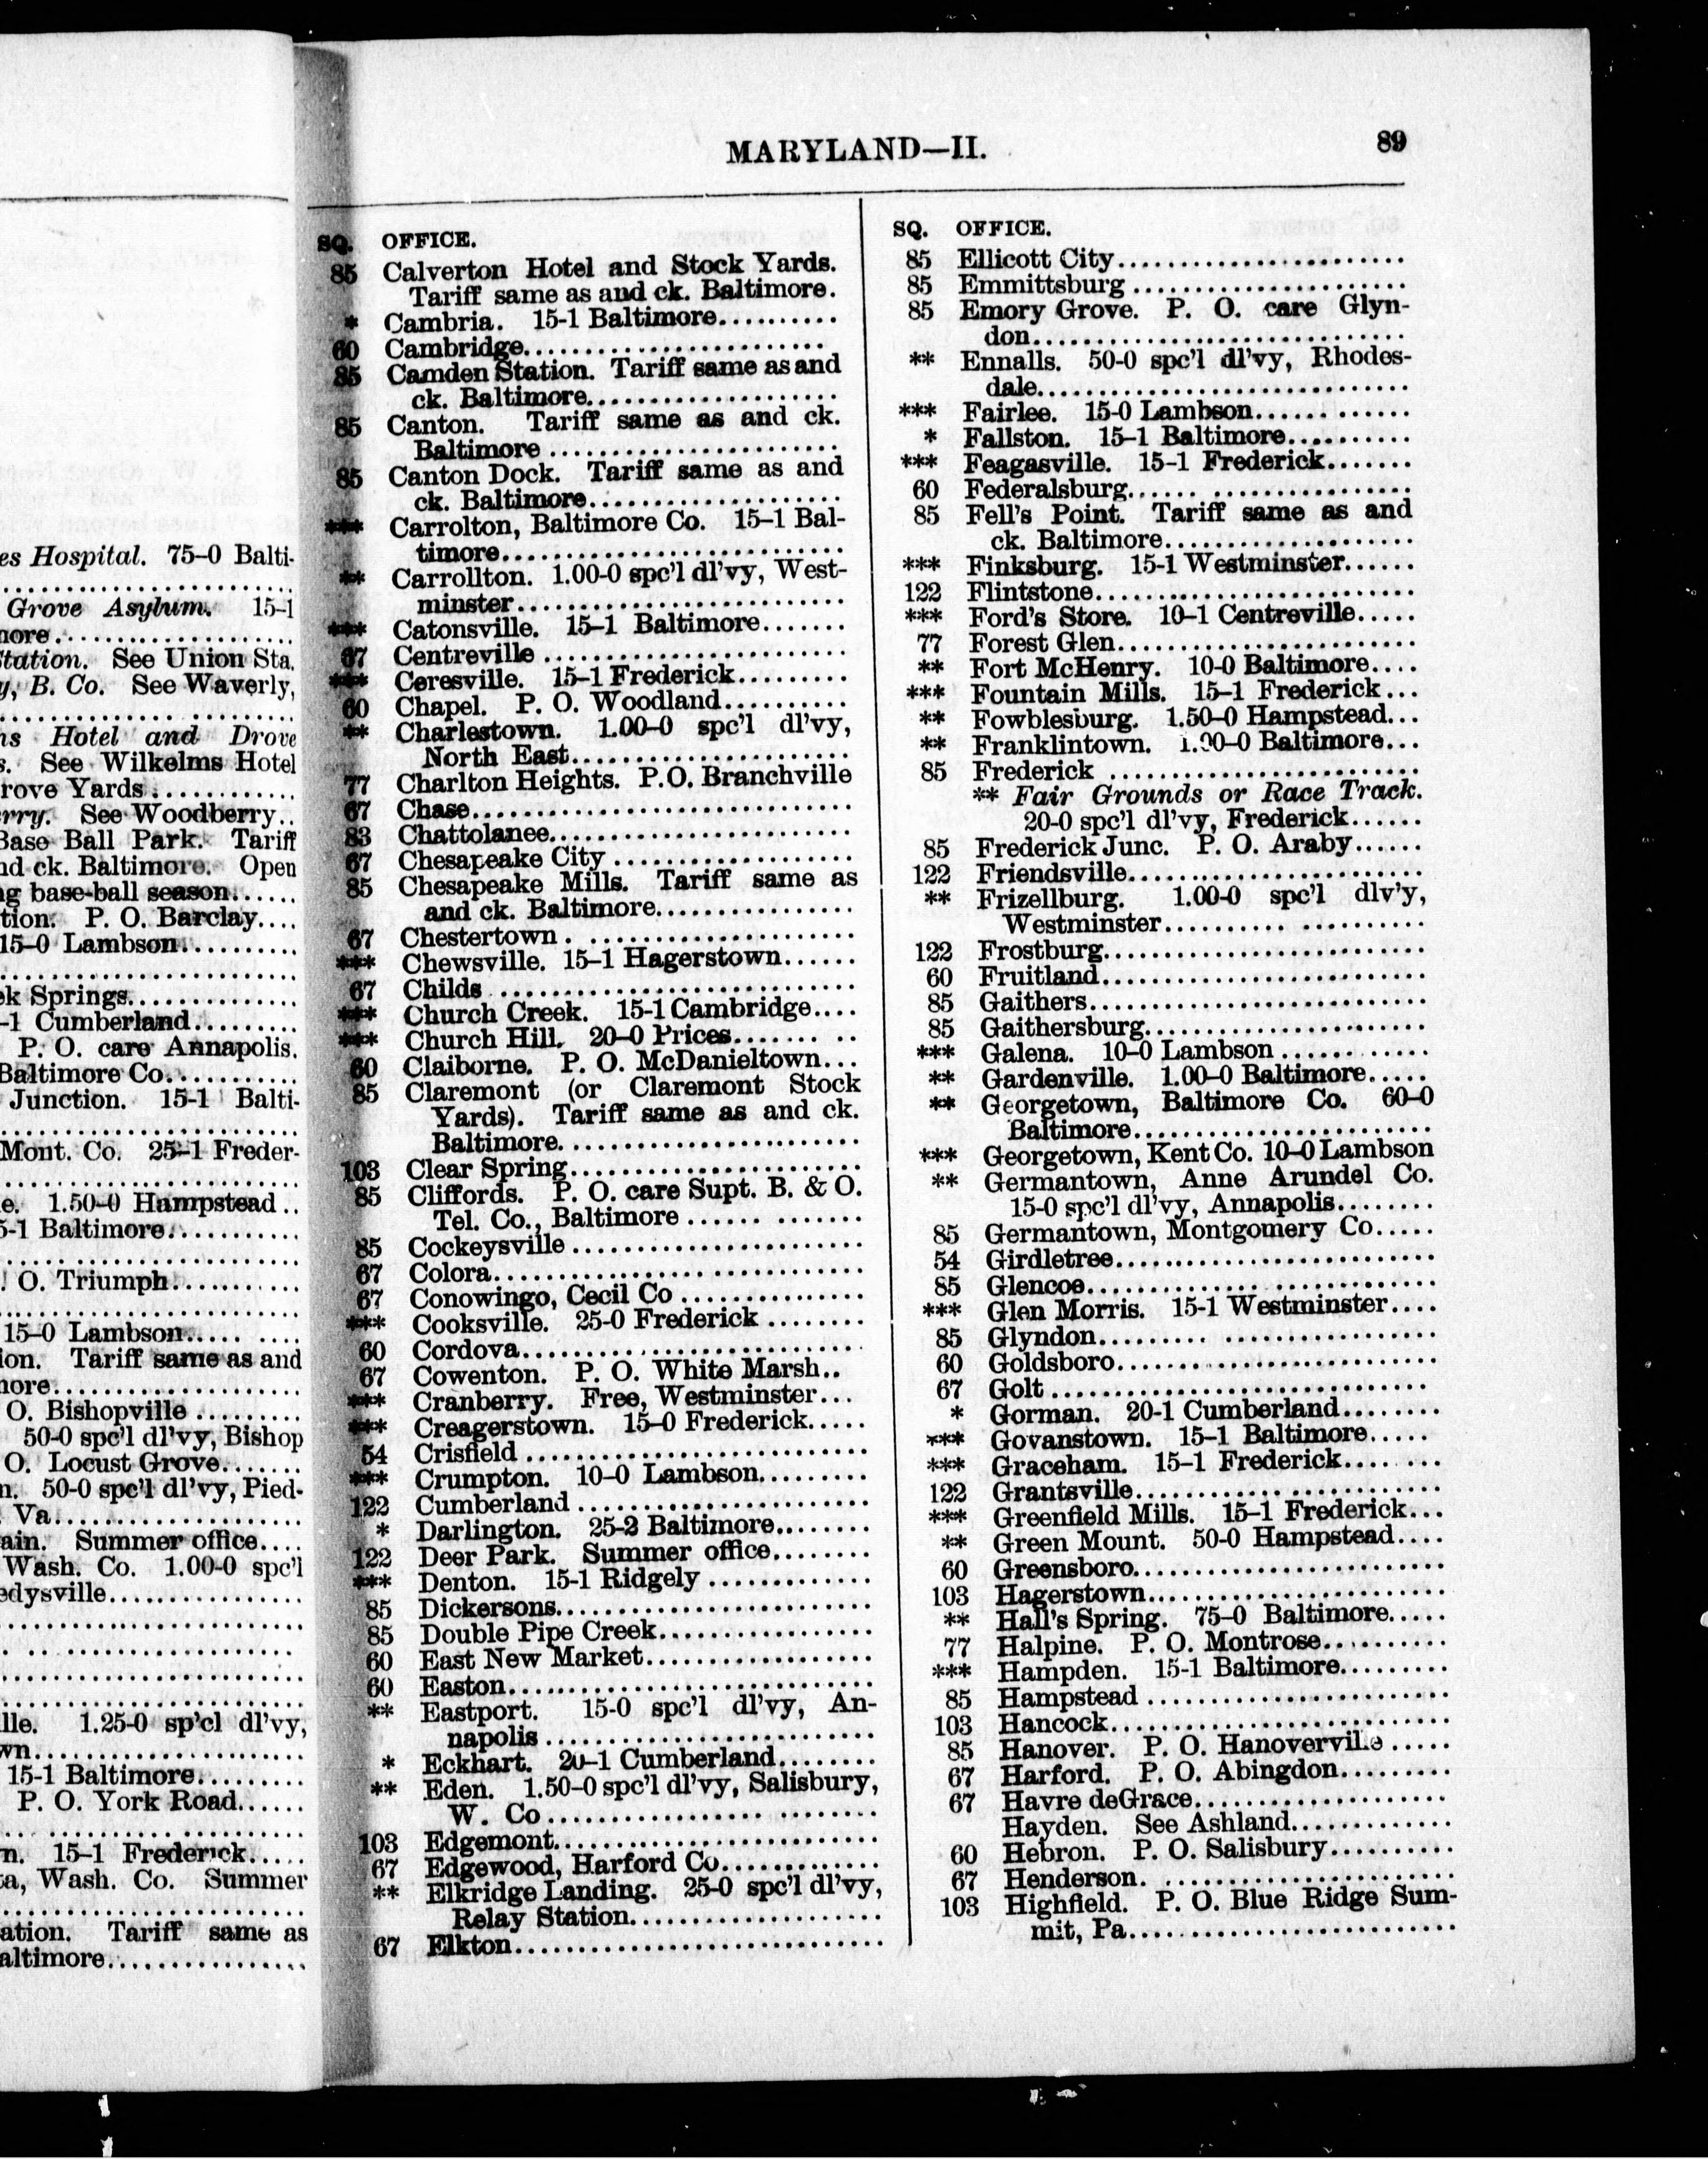 es Hospital. 75-0 Balti-
Grove Asylum. 15-1
more
Station. See Union Sta.
y, B. Co. See Waverly,
ns Hotel and Drove
s. See Wilkelms Hotel
rove Yards
rry. See Woodberry..
Base Ball Park. Tariff
nd ck. Baltimore. Open
ng base-ball season
tion. P. O. Barclay
15-0 Lambson
ek Springs
-1 Cumberland
P. O. care Annapolis.
Baltimore Co
Junction. 15-1 Balti-
Mont. Co. 25-1 Freder-
e. 1.50-0 Hampstead
5-1 Baltimore
O. Triumph
15-0 Lambson
ion. Tariff same as and
more
O. Bishopville
50-0 spc'l dl'vy, Bishop
O. Locust Grove
n. 50-0 spc'l dl'vy, Pied-
Va
ain. Summer office
Wash. Co. 1.00-0 spc'l
edysville
lle. 1.25-0 sp'cl dl'vy,
wn
15-1 Baltimore
P. O. York Road
n. 15-1 Frederick
ta, Wash. Co. Summer
ation. Tariff same as
altimore
MARYLAND—II. 89
SQ. OFFICE.
85 Calverton Hotel and Stock Yards.
Tariff same as and ck. Baltimore.
* Cambria. 15-1 Baltimore
60 Cambridge
85 Camden Station. Tariff same as and
ck. Baltimore
85 Canton. Tariff same as and ck.
Baltimore
85 Canton Dock. Tariff same as and
ck. Baltimore
*** Carrolton, Baltimore Co. 15-1 Bal-
timore
** Carrollton. 1.00-0 spc'l dl'vy, West-
minster
*** Catonsville. 15-1 Baltimore
67 Centreville
*** Ceresville. 15-1 Frederick
60 Chapel. P. O. Woodland
** Charlestown. 1.00-0 spc'l dl'vy,
North East
77 Charlton Heights. P.O. Branchville
67 Chase
83 Chattolanee
67 Chesapeake City
85 Chesapeake Mills. Tariff same as
and ck. Baltimore
67 Chestertown
*** Chewsville. 15-1 Hagerstown
67 Childs
*** Church Creek. 15-1 Cambridge
*** Church Hill. 20-0 Prices
60 Claiborne. P. O. McDanieltown
85 Claremont (or Claremont Stock
Yards). Tariff same as and ck.
Baltimore
103 Clear Spring
85 Cliffords. P. O. care Supt. B. & O.
Tel. Co., Baltimore
85 Cockeysville
67 Colora
67 Conowingo, Cecil Co
*** Cooksville. 25-0 Frederick
60 Cordova
67 Cowenton. P. O. White Marsh
*** Cranberry. Free, Westminster
*** Creagerstown. 15-0 Frederick
54 Crisfield
*** Crumpton. 10-0 Lambson
122 Cumberland
* Darlington. 25-2 Baltimore
122 Deer Park. Summer office
*** Denton. 15-1 Ridgely
85 Dickersons
85 Double Pipe Creek
60 East New Market
60 Easton
** Eastport. 15-0 spc'l dl'vy, An-
napolis
* Eckhart. 20-1 Cumberland
** Eden. 1.50-0 spc'l dl'vy, Salisbury,
W. Co
103 Edgemont
67 Edgewood, Harford Co
** Elkridge Landing. 25-0 spc'l dl'vy,
Relay Station
67 Elkton
SQ. OFFICE.
85 Ellicott City
85 Emmittsburg
85 Emory Grove. P. O. care Glyn-
don
** Ennalls. 50-0 spc'l dl'vy, Rhodes-
dale
*** Fairlee. 15-0 Lambson
* Fallston. 15-1 Baltimore
*** Feagasville. 15-1 Frederick
60 Federalsburg
85 Fell's Point. Tariff same as and
ck. Baltimore
*** Finksburg. 15-1 Westminster
122 Flintstone
*** Ford's Store. 10-1 Centreville
77 Forest Glen
** Fort McHenry. 10-0 Baltimore
*** Fountain Mills. 15-1 Frederick
** Fowblesburg. 1.50-0 Hampstead
** Franklintown. 1.00-0 Baltimore
85 Frederick
** Fair Grounds or Race Track.
20-0 spc'l dl'vy, Frederick
85 Frederick Junc. P. O. Araby
122 Friendsville
** Frizellburg. 1.00-0 spc'l dlv'y,
Westminster
122 Frostburg
60 Fruitland
85 Gaithers
85 Gaithersburg
*** Galena. 10-0 Lambson
** Gardenville. 1.00-0 Baltimore
** Georgetown, Baltimore Co. 60-0
Baltimore
*** Georgetown, Kent Co. 10-0 Lambson
** Germantown, Anne Arundel Co.
15-0 spc'l dl'vy, Annapolis
85 Germantown, Montgomery Co
54 Girdletree
85 Glencoe
*** Glen Morris. 15-1 Westminster
85 Glyndon
60 Goldsboro
67 Golt
* Gorman. 20-1 Cumberland
*** Govanstown. 15-1 Baltimore
*** Graceham. 15-1 Frederick
122 Grantsville
*** Greenfield Mills. 15-1 Frederick
** Green Mount. 50-0 Hampstead
60 Greensboro
103 Hagerstown
** Hall's Spring. 75-0 Baltimore
77 Halpine. P. O. Montrose
*** Hampden. 15-1 Baltimore
85 Hampstead
103 Hancock
85 Hanover. P. O. Hanoverville
67 Harford. P. O. Abingdon
67 Havre deGrace
Hayden. See Ashland
60 Hebron. P. O. Salisbury
67 Henderson
103 Highfield. P. O. Blue Ridge Sum-
mit, Pa